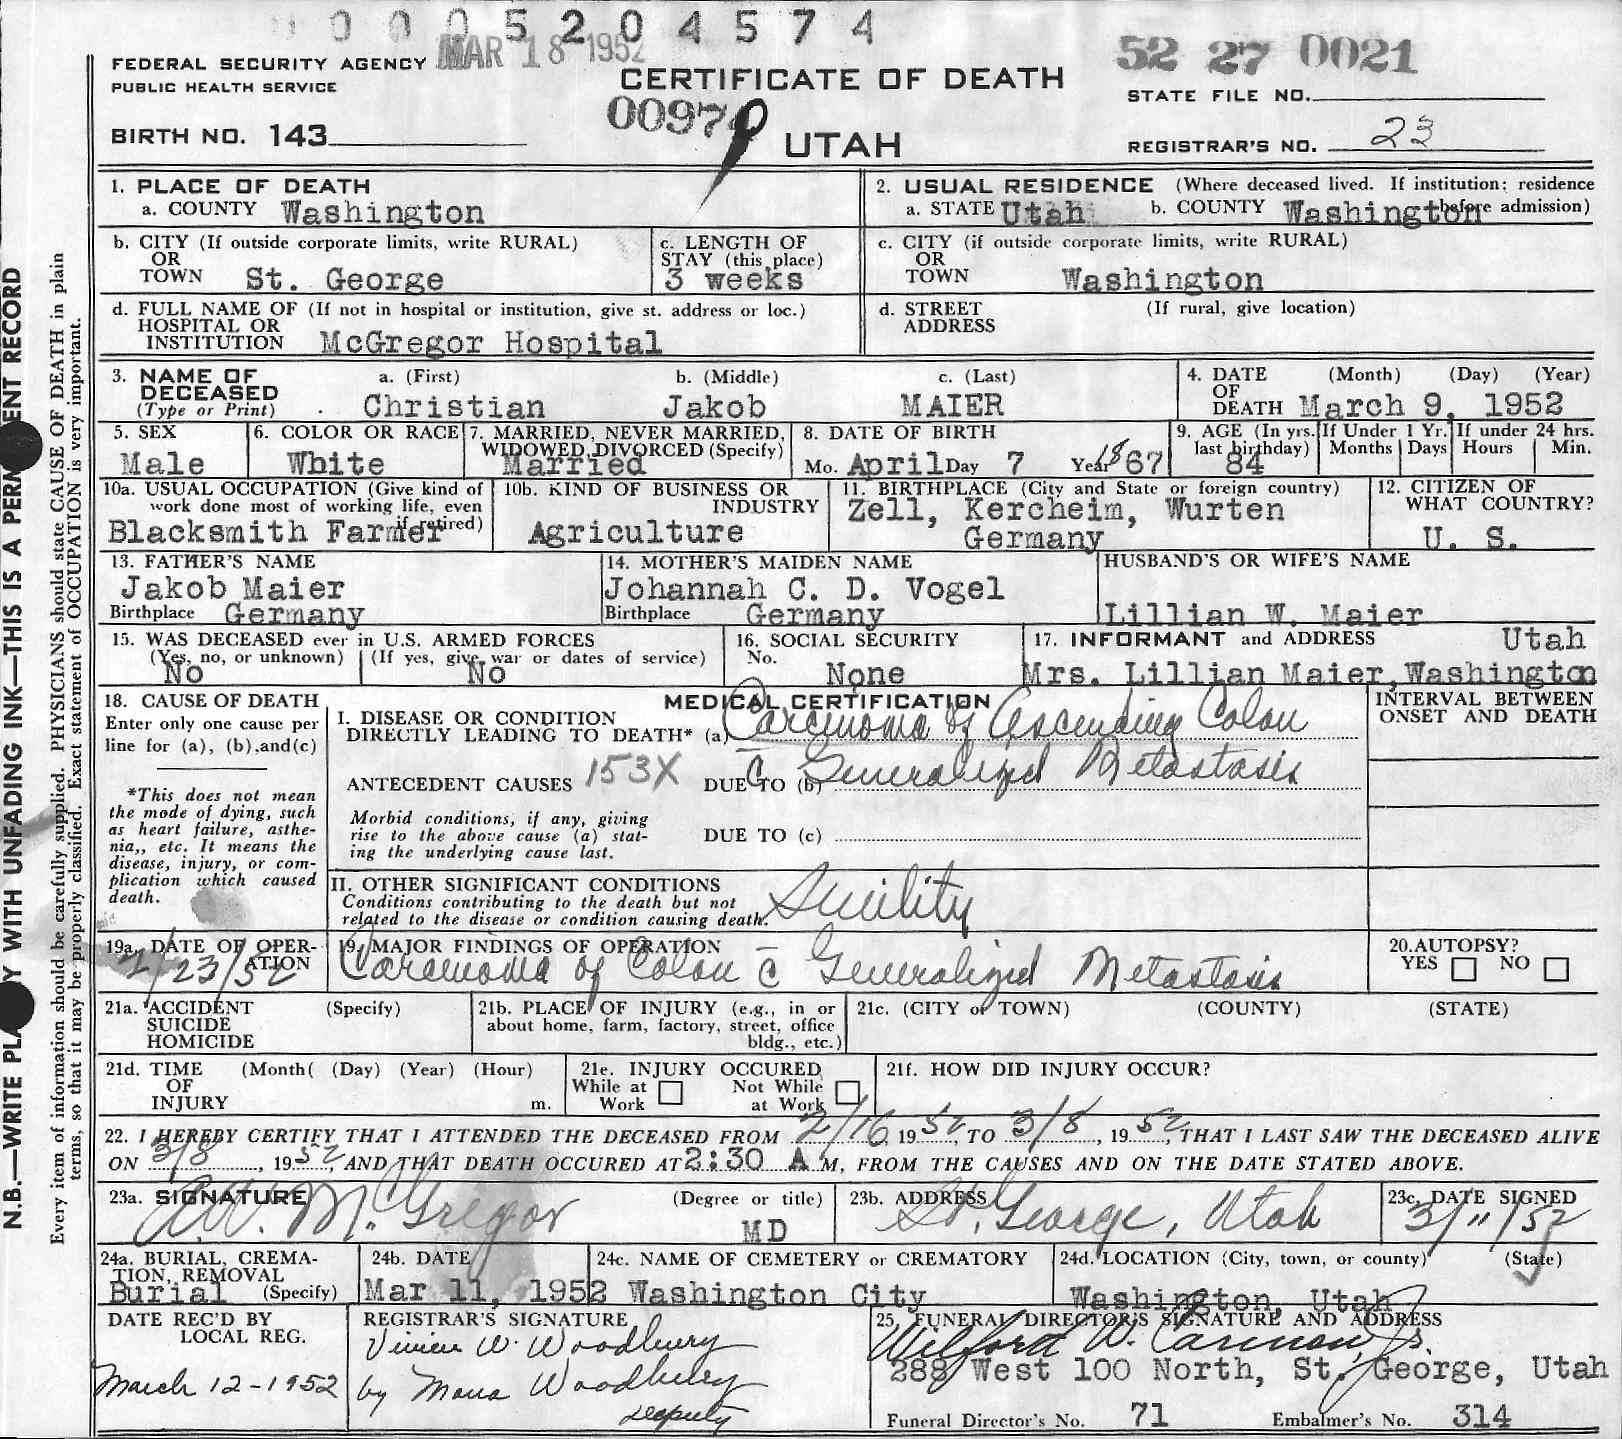 0005204574
MAR 18 1952
52 27 0021
FEDERAL SECURITY AGENCY
PUBLIC HEALTH SERVICE
CERTIFICATE OF DEATH
STATE FILE NO.
0097
BIRTH NO. 143
UTAH
REGISTRAR'S NO. 23
N.B.—WRITE PLAINLY WITH UNFADING INK—THIS IS A PERMANENT RECORD
Every item of information should be carefully supplied. PHYSICIANS should state CAUSE OF DEATH in plain
terms, so that it may be properly classified. Exact statement of OCCUPATION is very important.
1. PLACE OF DEATH
a. COUNTY Washington
2. USUAL RESIDENCE (Where deceased lived. If institution: residence before admission)
a. STATE Utah b. COUNTY Washington
b. CITY (If outside corporate limits, write RURAL)
OR
TOWN St. George
c. LENGTH OF
STAY (this place)
3 weeks
c. CITY (if outside corporate limits, write RURAL)
OR
TOWN Washington
d. FULL NAME OF (If not in hospital or institution, give st. address or loc.)
HOSPITAL OR
INSTITUTION McGregor Hospital
d. STREET (If rural, give location)
ADDRESS
3. NAME OF DECEASED a. (First) b. (Middle) c. (Last)
(Type or Print) Christian Jakob MAIER
4. DATE (Month) (Day) (Year)
OF
DEATH March 9, 1952
5. SEX
Male
6. COLOR OR RACE
White
7. MARRIED, NEVER MARRIED,
WIDOWED, DIVORCED (Specify)
Married
8. DATE OF BIRTH
Mo. April Day 7 Year 1867
9. AGE (In yrs. last birthday)
84
If Under 1 Yr.
Months Days
If under 24 hrs.
Hours Min.
10a. USUAL OCCUPATION (Give kind of
work done most of working life, even
if retired)
Blacksmith Farmer
10b. KIND OF BUSINESS OR
INDUSTRY
Agriculture
11. BIRTHPLACE (City and State or foreign country)
Zell, Kercheim, Wurten
Germany
12. CITIZEN OF
WHAT COUNTRY?
U. S.
13. FATHER'S NAME
Jakob Maier
Birthplace Germany
14. MOTHER'S MAIDEN NAME
Johannah C. D. Vogel
Birthplace Germany
HUSBAND'S OR WIFE'S NAME
Lillian W. Maier
15. WAS DECEASED ever in U.S. ARMED FORCES
(Yes, no, or unknown) (If yes, give war or dates of service)
No No
16. SOCIAL SECURITY
No.
None
17. INFORMANT and ADDRESS Utah
Mrs. Lillian Maier, Washington
18. CAUSE OF DEATH
Enter only one cause per
line for (a), (b), and (c)
*This does not mean
the mode of dying, such
as heart failure, asthe-
nia,, etc. It means the
disease, injury, or com-
plication which caused
death.
MEDICAL CERTIFICATION
I. DISEASE OR CONDITION
DIRECTLY LEADING TO DEATH* (a) Carcinoma of Ascending Colon
ANTECEDENT CAUSES 153X DUE TO (b) c̄ Generalized Metastasis
Morbid conditions, if any, giving
rise to the above cause (a) stat-
ing the underlying cause last.
DUE TO (c)
INTERVAL BETWEEN
ONSET AND DEATH
II. OTHER SIGNIFICANT CONDITIONS
Conditions contributing to the death but not
related to the disease or condition causing death. Senility
19a. DATE OF OPER-
ATION
2/23/52
19. MAJOR FINDINGS OF OPERATION
Carcinoma of Colon c̄ Generalized Metastasis
20. AUTOPSY?
YES NO
21a. ACCIDENT (Specify)
SUICIDE
HOMICIDE
21b. PLACE OF INJURY (e.g., in or
about home, farm, factory, street, office
bldg., etc.)
21c. (CITY or TOWN) (COUNTY) (STATE)
21d. TIME (Month( (Day) (Year) (Hour)
OF
INJURY m.
21e. INJURY OCCURED
While at Work Not While at Work
21f. HOW DID INJURY OCCUR?
22. I HEREBY CERTIFY THAT I ATTENDED THE DECEASED FROM 2/16, 1952, TO 3/8, 1952, THAT I LAST SAW THE DECEASED ALIVE
ON 3/8, 1952, AND THAT DEATH OCCURED AT 2:30 A M, FROM THE CAUSES AND ON THE DATE STATED ABOVE.
23a. SIGNATURE (Degree or title)
A.W. McGregor MD
23b. ADDRESS
St. George, Utah
23c. DATE SIGNED
3/11/52
24a. BURIAL, CREMA-
TION, REMOVAL
Burial (Specify)
24b. DATE
Mar 11, 1952
24c. NAME OF CEMETERY or CREMATORY
Washington City
24d. LOCATION (City, town, or county) (State)
Washington, Utah
DATE REC'D BY
LOCAL REG.
March 12-1952
REGISTRAR'S SIGNATURE
W. Woodbury
by Mona Woodbury
Deputy
25. FUNERAL DIRECTOR'S SIGNATURE AND ADDRESS
Wilford W. Cannon, Jr.
288 West 100 North, St. George, Utah
Funeral Director's No. 71 Embalmer's No. 314